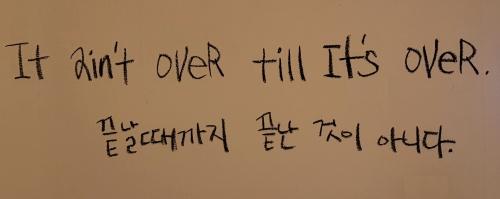 It ain't oveR till It's oveR.
끝날때까지 끝난 것이 아니다.